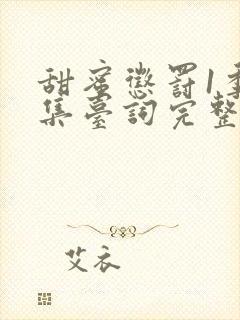 甜蜜懲罰1季
集臺詞完整
艾衣